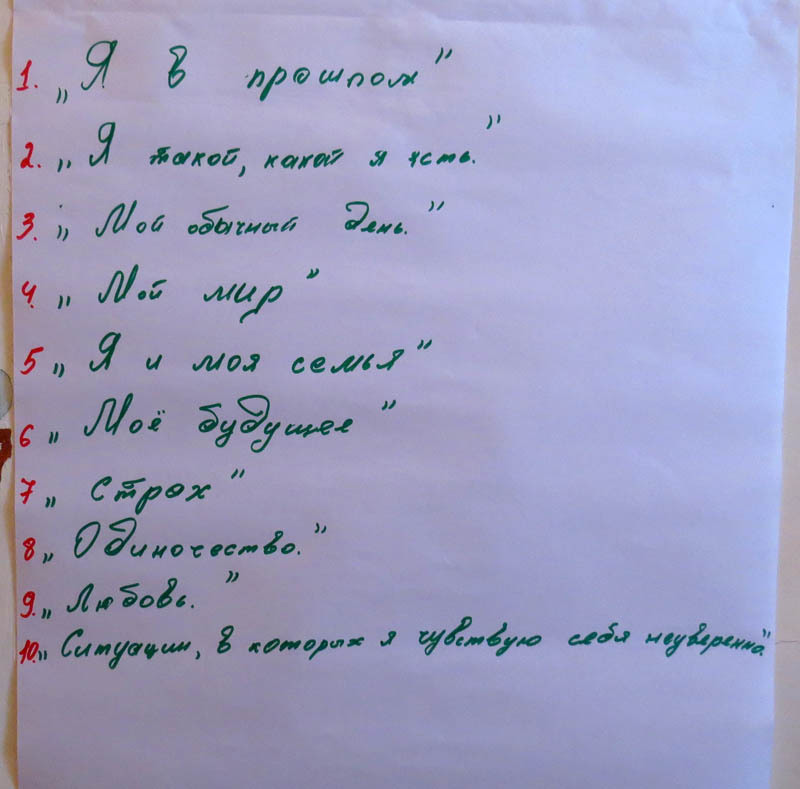 1. „Я в прошлом"
2. „Я такой, какой я есть."
3. „Мой обычный день."
4. „Мой мир"
5 „Я и моя семья"
6 „Моё будущее"
7 „Страх"
8 „Одиночество."
9. „Любовь."
10. „Ситуации, в которых я чувствую себя неуверенно."